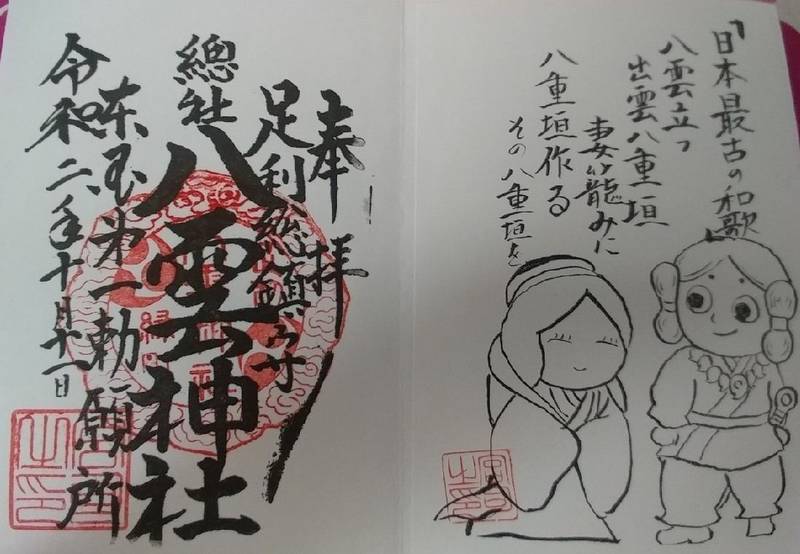 「日本最古の和歌」
八雲立つ
出雲八重垣
妻籠みに
八重垣作る
その八重垣を
奉拝
足利総鎮守
總社
八雲神社
東国第一勅願所
令和 年十月 日